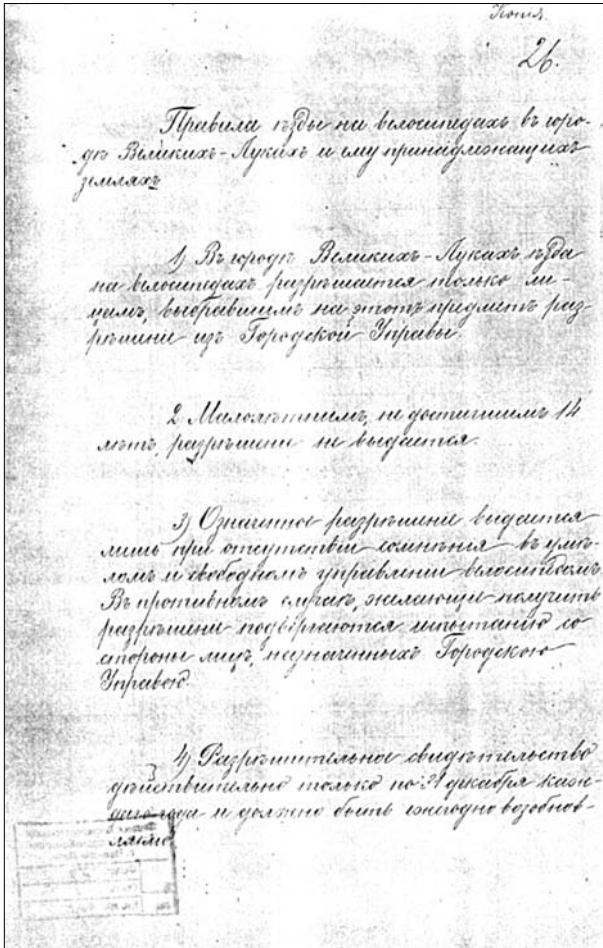 Копия.
26.
Правила ѣзды на велосипедахъ въ горо-
дѣ Великихъ-Лукахъ и ему принадлежащихъ
земляхъ
1) Въ городѣ Великихъ-Лукахъ ѣзда
на велосипедахъ разрѣшается только ли-
цамъ, выбравшимъ на этотъ предметъ раз-
рѣшение изъ Городской Управы.
2) Малолѣтнимъ, не достигшимъ 14
лѣтъ разрѣшение не выдается.
3) Означенное разрѣшение выдается
лишь при отсутствии сомнѣния въ умѣ-
ломъ и свободномъ управлении велосипедомъ.
Въ противномъ случаѣ, желающие получить
разрѣшение подвѣргаются испытанию со
стороны лицъ, назначенныхъ Городскою
Управою.
4) Разрѣшительное свидѣтельство
дѣйствительно только по 31 декабря каж-
даго года и должно быть ежегодно возобнов-
ляемо